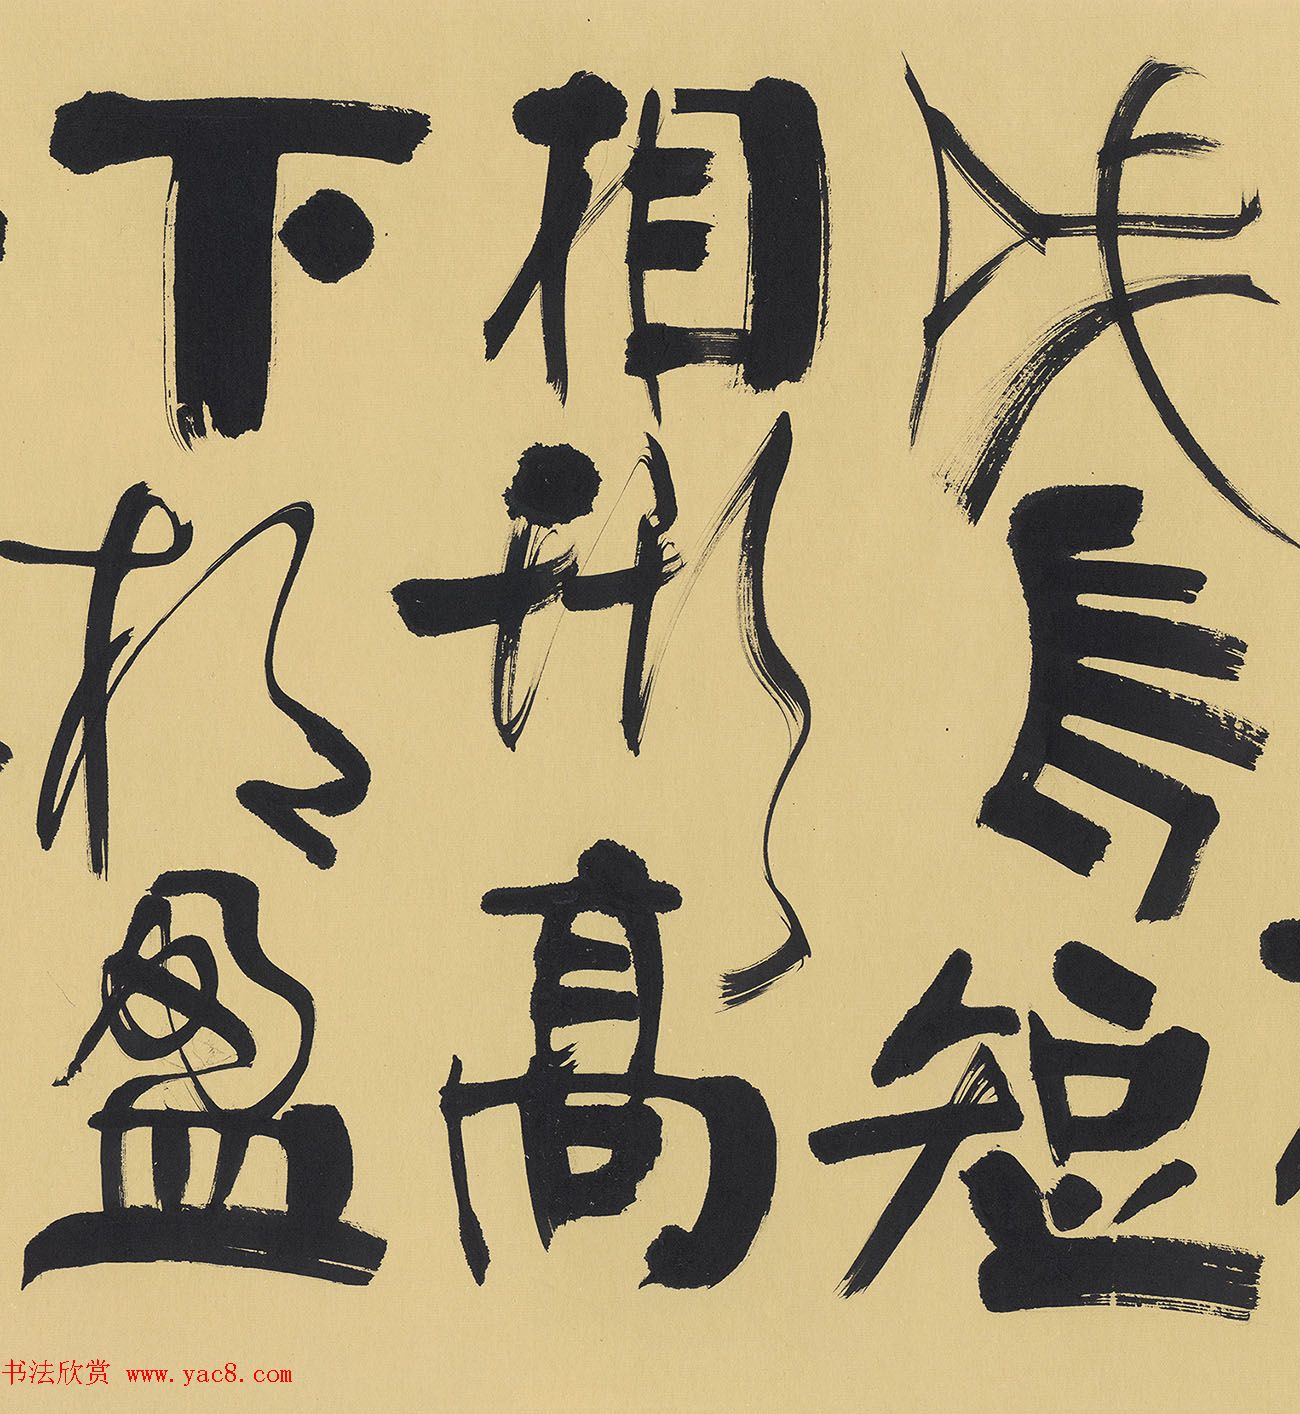 成長短
相形高
下相盈
书法欣赏 www.yac8.com